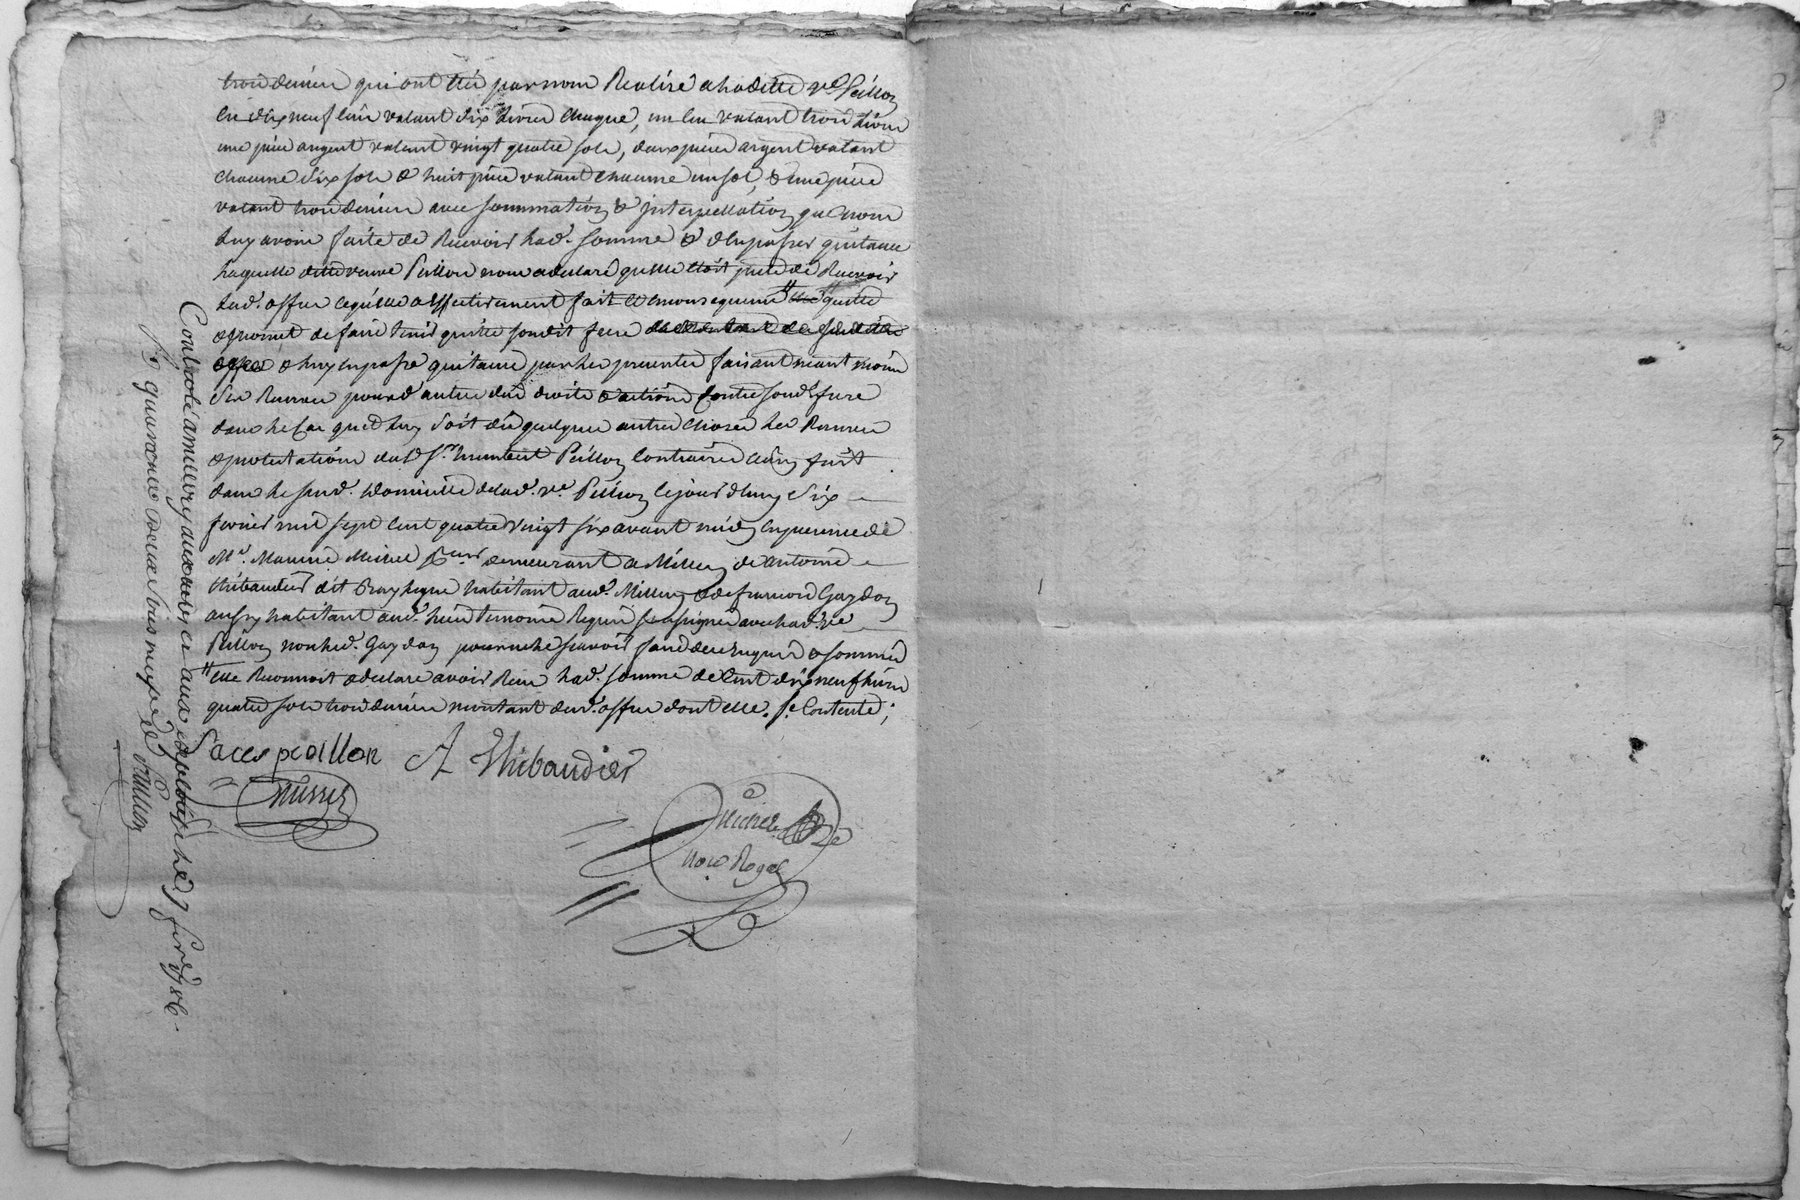 trois deniers qui ont été par nous Realisé a ladette ve. Peillon
en dix neuf louis valant six livres chaque, un ecu valant trois livres
une piece argent valant vingt quatre sols, deux pieces argent valant
chacune six sols & huit pieces valant chacune un sol, & une piece
valant trois deniers avec sommation & Interpellation que nous
luy avons faite de Recevoir lad. somme & d'en passer quitance
laquelle ditte veuve Peillon nous a declaré quelle étoit prete de Recevoir
lad. offre ce qu'elle a effectivement fait & en consequence quitte
& promet de faire tenir quitte sondit frere
& luy en passe quitance par les presentes faisant neant moins
ses Reserves pour d'autres dus droits & actions contre sond. frere
dans le cas que luy soit dû quelques autres choses les Reserves
& protestations dud. sr. humbert Peillon contraires ainsy fait
dans le susd. domicille de lad. ve. Peillon ce jourdhuy six
fevrier mil sept cent quatre vingt six avant midy en presence de
Me. Maurice Mussel demeurant a Millery de antoine
thibaudier dit habitant aud. Millery & de francois Gaydon
aussy habitant aud. lieu temoins Requis soussignés avec lad. ve
Peillon non led. Gaydon pour ne le scavoir faire de ce enquis & sommé
elle Reconnoit & declare avoir Reçu lad. somme de cent dix neuf livres
quatre sols trois deniers montant dud. offre dont elle se contente;
peaillon A Thibaudier
Mussel
Michel
No.re Royal
Controlé a millery aux actes et aux exploits le 7 fevrier 1786
quarante deux sols neuf d